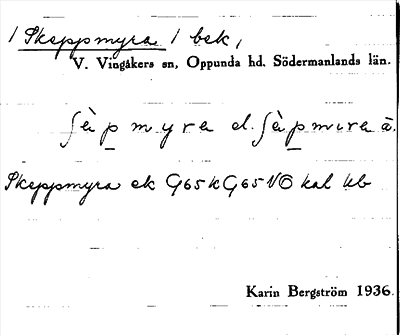 / Skeppmyra / bek,
V. Vingåkers sn, Oppunda hd. Södermanlands län.
ʃàp myra el. ʃàpmira ä.
Skeppmyra ek G65 k G65 kal hb
Karin Bergström 1936.